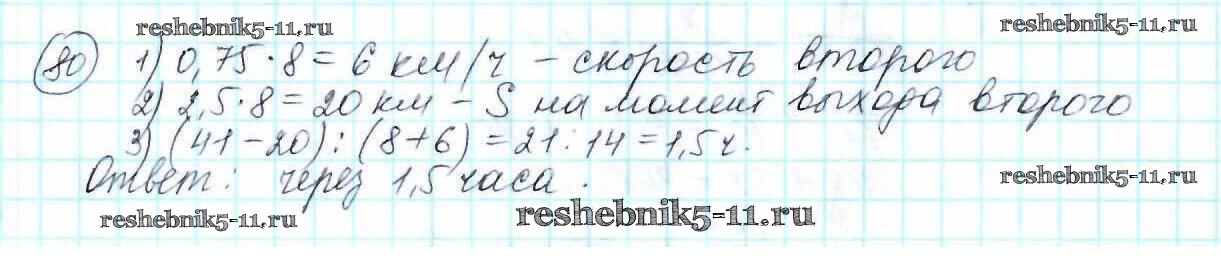 reshebnik5-11.ru reshebnik5-11.ru
80 1) 0,75·8=6 км/ч – скорость второго
2) 2,5·8=20 км – S на момент выхода второго
3) (41–20):(8+6)=21:14=1,5ч.
Ответ: через 1,5 часа.
reshebnik5-11.ru
reshebnik5-11.ru reshebnik5-11.ru